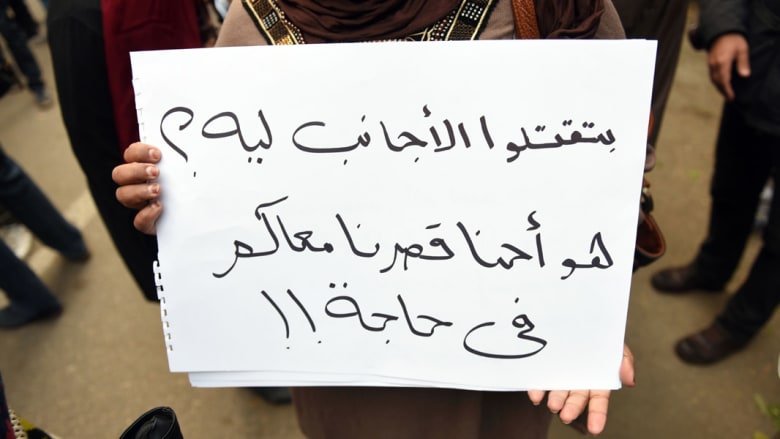 بتقتلوا الأجانب ليه؟
هو أحنا قصرنا معاكم
فى حاجة!!